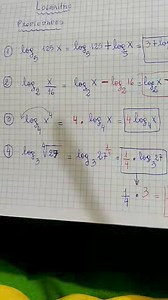 Logaritmi
① log₅ 125x = log₅ 125 + log₅ x = 3 + log
② log₂ x/16 = log₂ x - log₂ 16 = log x -
③ log₄ x⁴ = 4 · log₄ x = 4 log₄ x
④ log₃ ⁴√27 = log₃ 27^¼ = ¼ · log₃ 27
¼ · 3 =